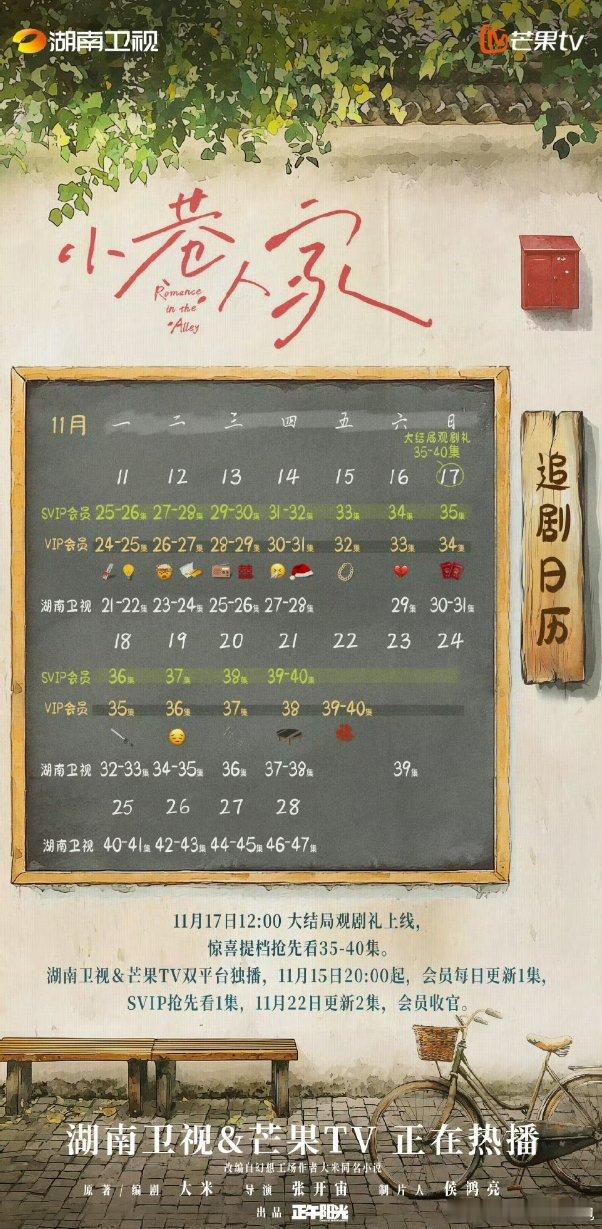 湖南卫视
芒果TV
小巷人家
Romance
in the
Alley
追剧日历
11月 一 二 三 四 五 六 日
大结局观剧礼
35-40集
11 12 13 14 15 16 17
SVIP会员 25-26集 27-28集 29-30集 31-32集 33集 34集 35集
VIP会员 24-25集 26-27集 28-29集 30-31集 32集 33集 34集
湖南卫视 21-22集 23-24集 25-26集 27-28集 29集 30-31集
18 19 20 21 22 23 24
SVIP会员 36集 37集 38集 39-40集
VIP会员 35集 36集 37集 38 39-40集
湖南卫视 32-33集 34-35集 36集 37-38集 39集
25 26 27 28
湖南卫视 40-41集 42-43集 44-45集 46-47集
11月17日12:00 大结局观剧礼上线，
惊喜提档抢先看35-40集。
湖南卫视&芒果TV双平台独播，11月15日20:00起，会员每日更新1集，
SVIP抢先看1集，11月22日更新2集，会员收官。
湖南卫视&芒果TV 正在热播
改编自幻想工场作者大米同名小说
原著/编剧 大米 导演 张开宙 制片人 侯鸿亮
出品 正午阳光